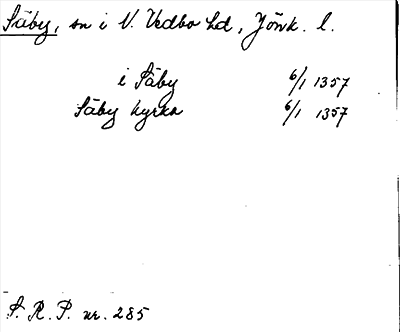 Säby, sn i N. Vedbo hd, Jönk. l.
i Säby 6/1 1357
Säby kyrka 6/1 1357
S. R. P. nr. 285